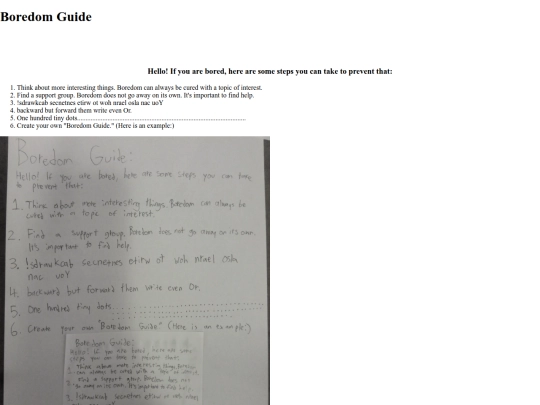 Boredom Guide
Hello! If you are bored, here are some steps you can take to prevent that:
1. Think about more interesting things. Boredom can always be cured with a topic of interest.
2. Find a support group. Boredom does not go away on its own. It's important to find help.
3. !sdrawkcab secnetnes etirw ot woh nrael osla nac uoY
4. backward but forward them write even Or.
5. One hundred tiny dots....................................................................................................
6. Create your own "Boredom Guide." (Here is an example:)
Boredom Guide:
Hello! If you are bored, here are some steps you can take
to prevent that:
1. Think about more interesting things. Boredom can always be
cured with a topic of interest.
2. Find a support group. Boredom does not go away on its own.
It's important to find help.
3. !sdrawkcab secnetnes etirw ot woh nrael osla
nac uoY
4. backward but forward them write even Or.
5. One hundred tiny dots
6. Create your own "Boredom Guide" (Here is an example:)
Boredom Guide:
Hello! If you are bored, here are some
steps you can take to prevent that:
1. Think about more interesting things. Boredom
can always be cured with a topic of interest.
Find a support group. Boredom does not
go away on its own. It's important to find help
3. !sdrawkcab secnetnes etirw ot woh nrael